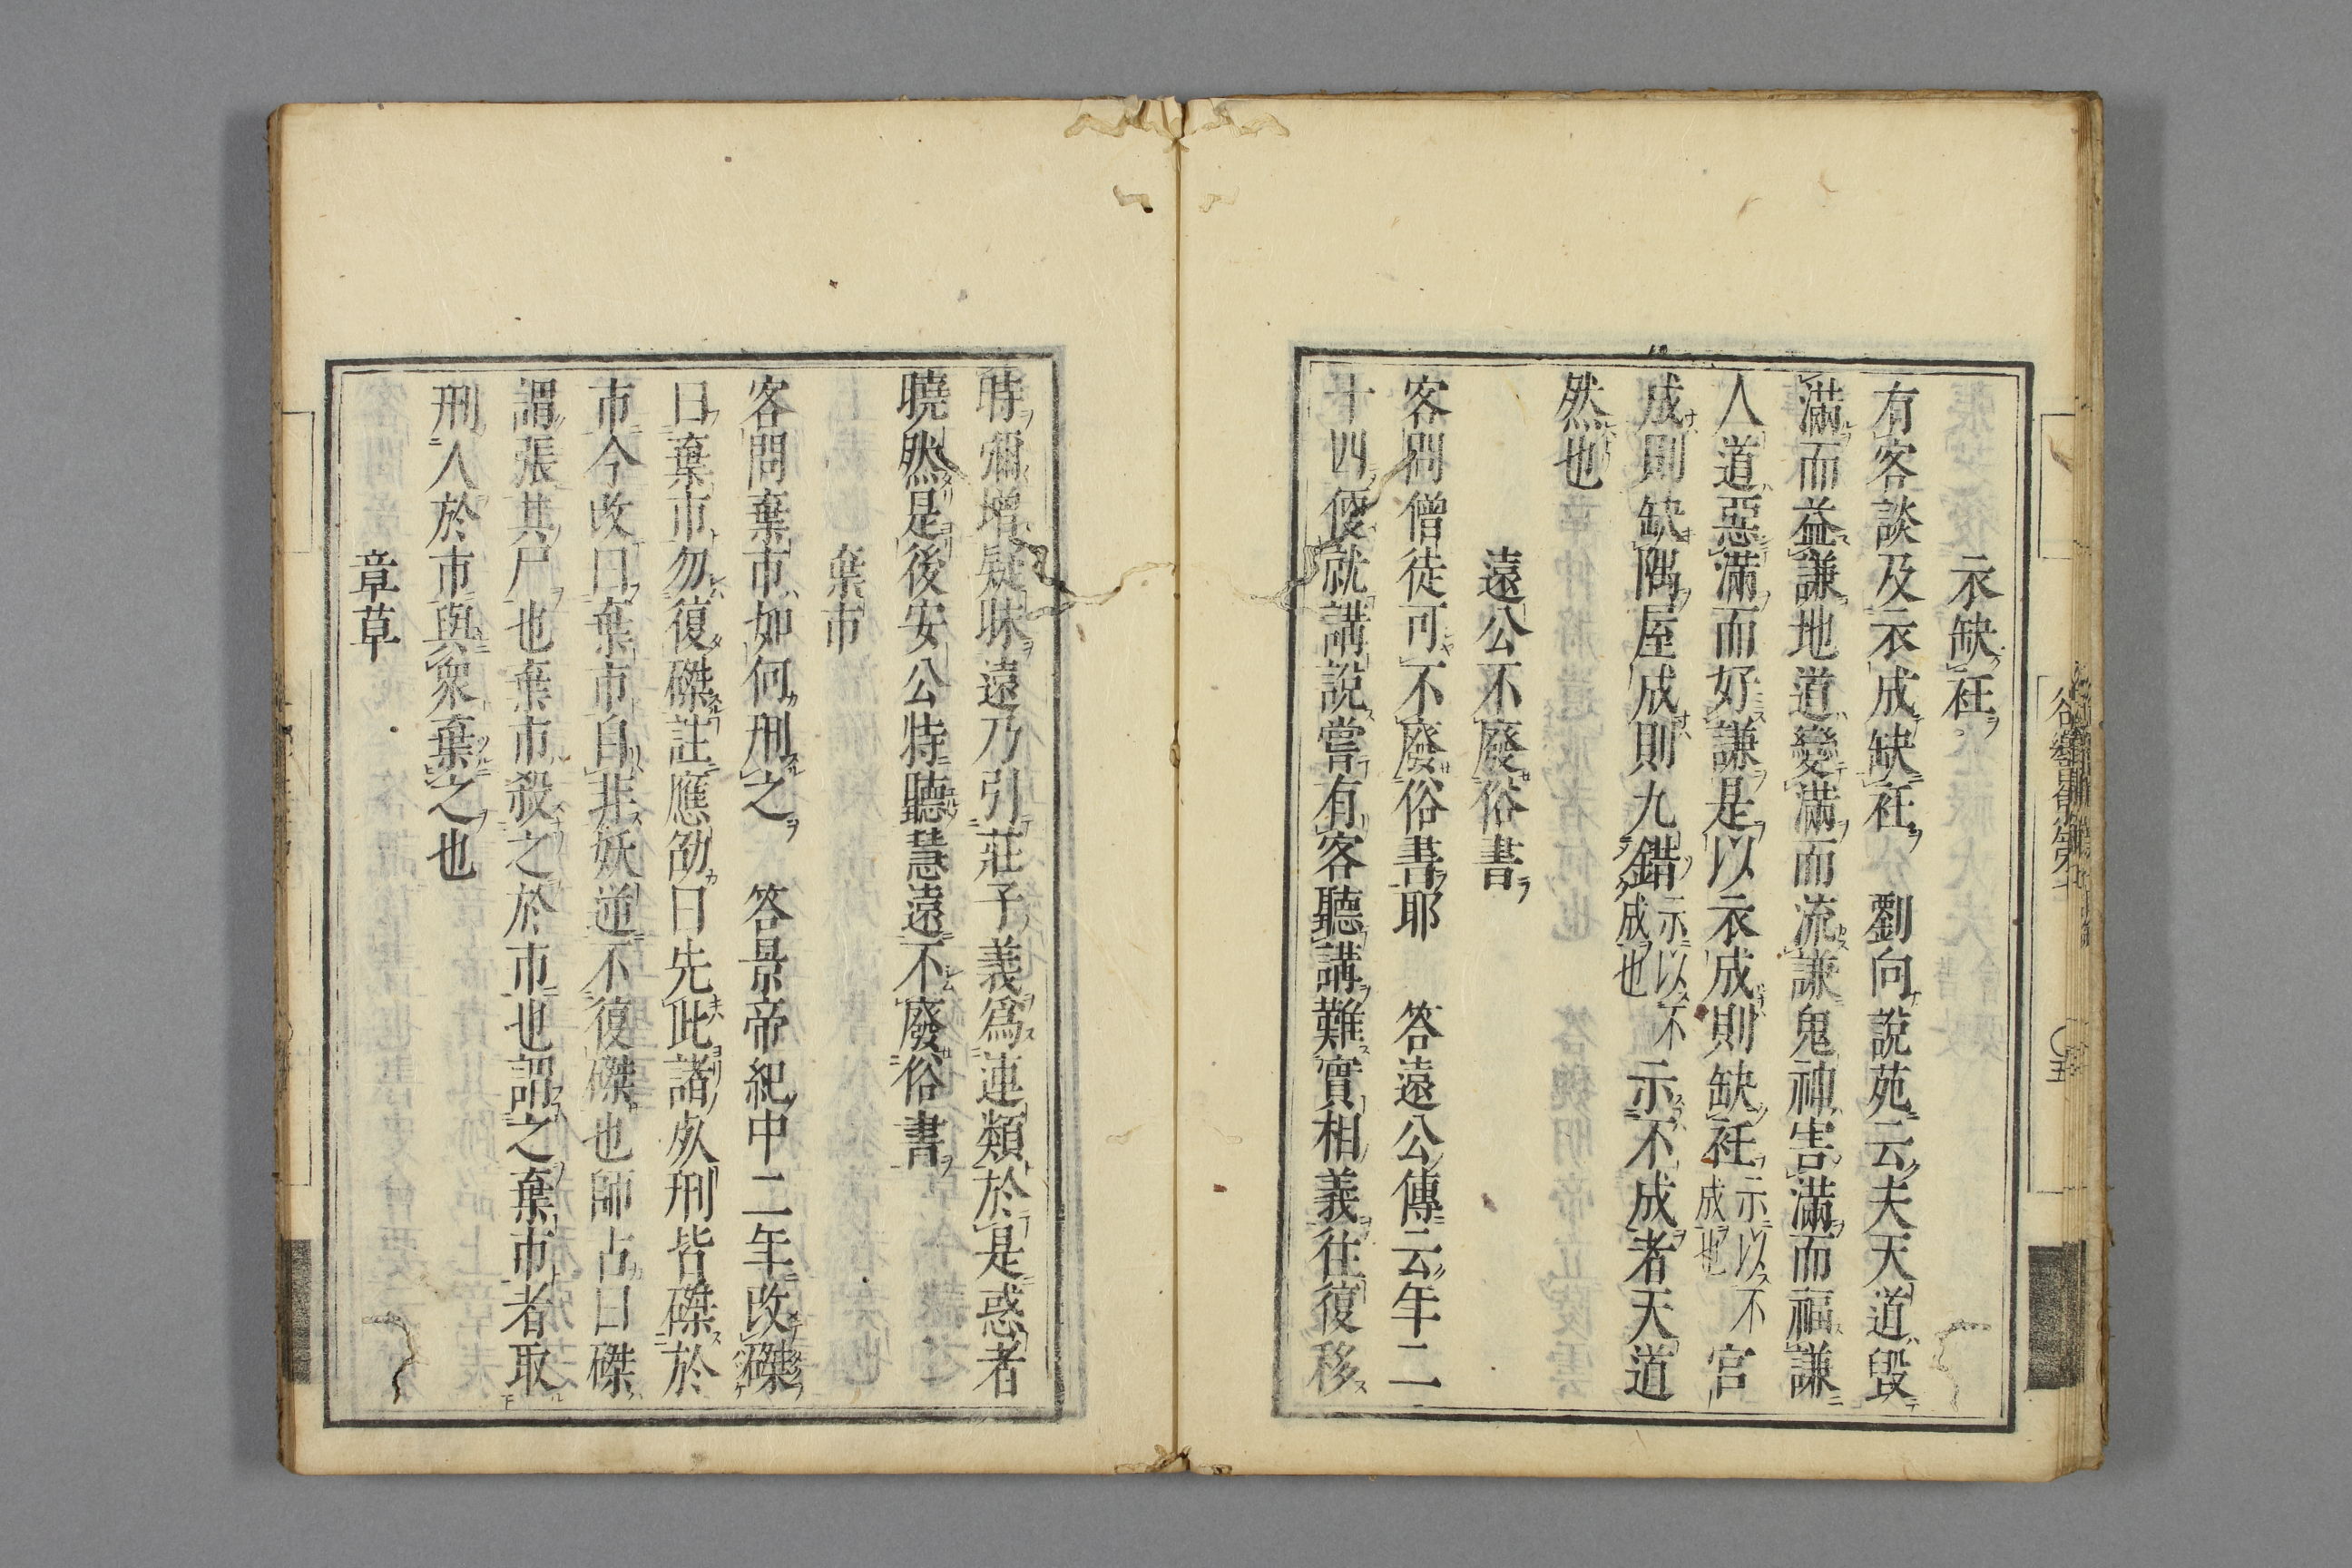 衣缺衽
有客談及衣成缺衽　劉向說苑云夫天道毀
滿而益謙地道變滿而流謙鬼神害滿而福謙
人道惡滿而好謙是以衣成則缺衽示以不成也宮
成則缺隅屋成則九錯示以不成也示不成者天道
然也
遠公不廢俗書
客問僧徒可不廢俗書耶　答遠公傳云年二
十四便就講說嘗有客聽講難實相義往復移
時彌增疑昧遠乃引莊子義爲連類於是惑者
曉然是後安公特聽慧遠不廢俗書
棄市
客問棄市如何刑之　答景帝紀中二年改磔
曰棄市勿復磔註應劭曰先此諸死刑皆磔於
市今改曰棄市自非妖逆不復磔也師古曰磔
謂張其尸也棄市殺之於市也謂之棄市者取
刑人於市與衆棄之也
章草